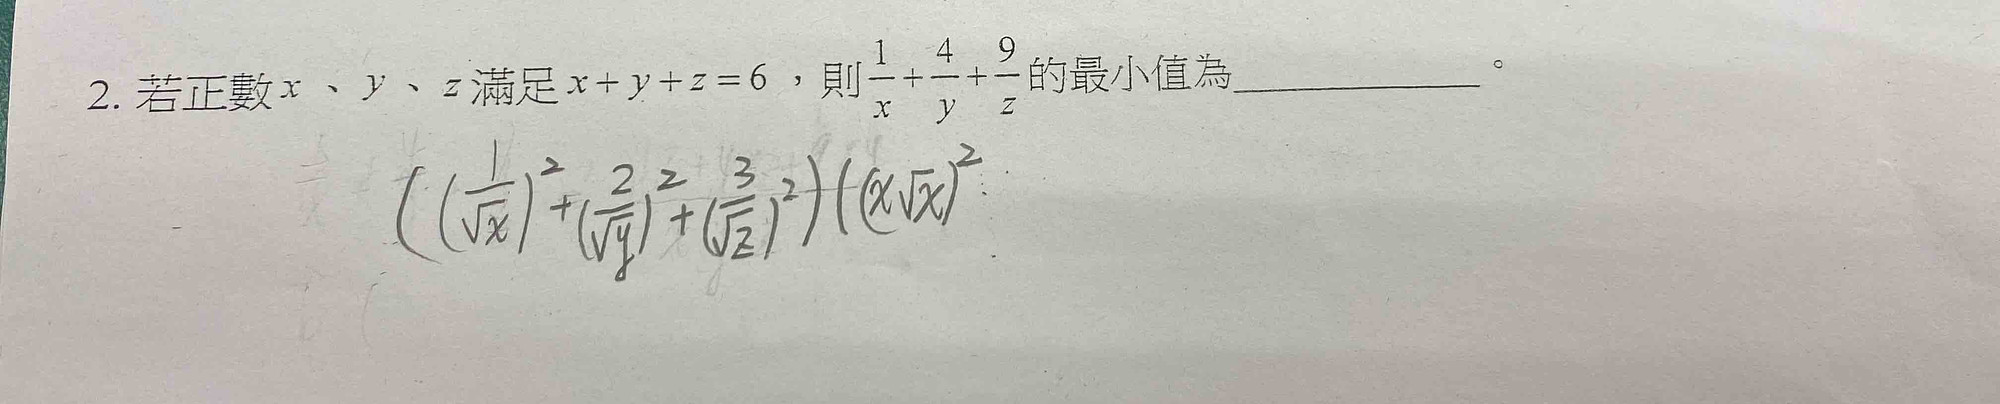 2. 若正數 x 、 y 、 z 滿足 x + y + z = 6 ,則 1/x + 4/y + 9/z 的最小值為____________。
((1/√x)² + (2/√y)² + (3/√z)²)((x√x)²